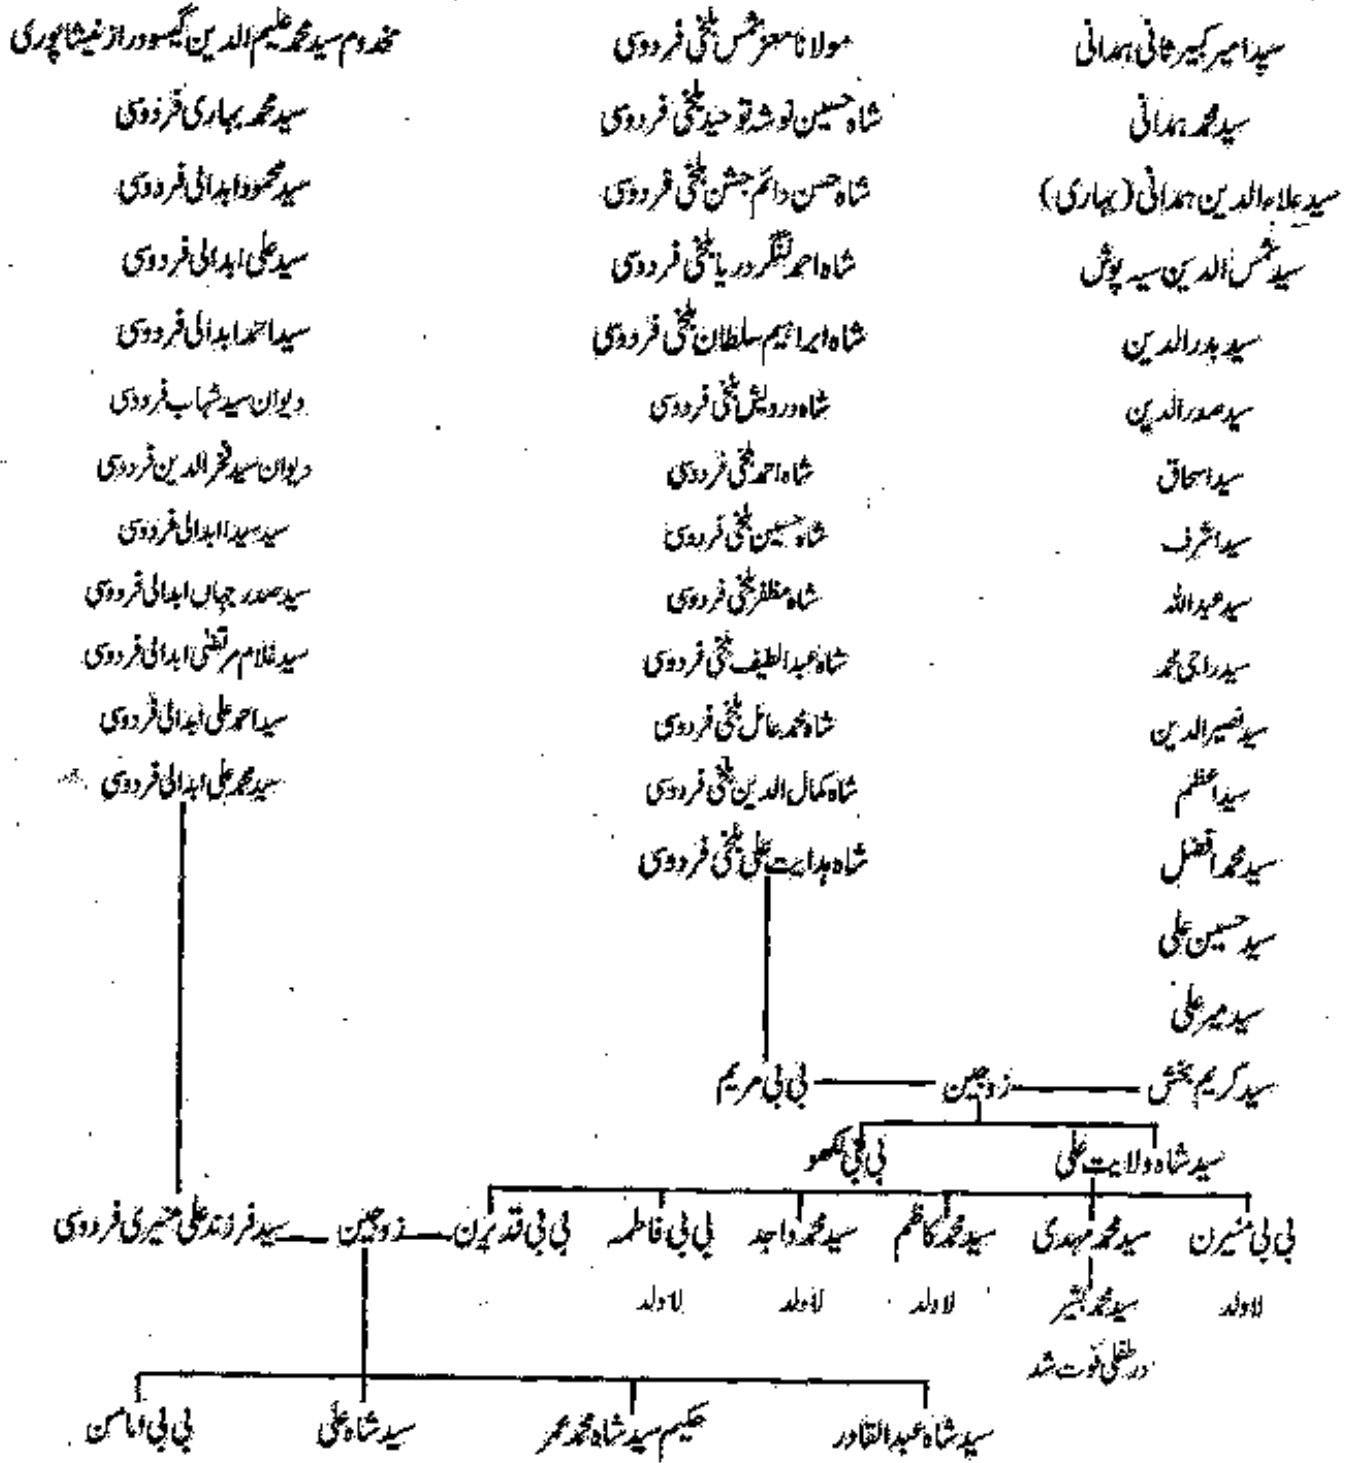 سید امیر کبیر ثانی ہمدانی
سید محمد ہمدانی
سید علاءالدین ہمدانی (بہاری)
سید شمس الدین سیہ پوش
سید بدرالدین
سید صدرالدین
سید اسحاق
سید اشرف
سید عبداللہ
سید راجی محمد
سید نصیرالدین
سید اعظم
سید محمد افضل
سید حسین علی
سید میر علی
سید کریم بخش
مولانا معز شمس بلخی فردوسی
شاہ حسین نوشہ توحید بلخی فردوسی
شاہ حسن دائم جشن بلخی فردوسی
شاہ احمد لنگر دریا بلخی فردوسی
شاہ ابراہیم سلطان بلخی فردوسی
شاہ درویش بلخی فردوسی
شاہ احمد بلخی فردوسی
شاہ حسین بلخی فردوسی
شاہ مظفر بلخی فردوسی
شاہ عبدالطیف بلخی فردوسی
شاہ محمد عائل بلخی فردوسی
شاہ کمال الدین بلخی فردوسی
شاہ ہدایت علی بلخی فردوسی
زوجین
بی بی مریم
مخدوم سید محمد علیم الدین گیسودراز نیشاپوری
سید محمد بہاری فردوسی
سید محمود ابدالی فردوسی
سید علی ابدالی فردوسی
سید احمد ابدالی فردوسی
دیوان سید شہاب فردوسی
دیوان سید فخرالدین فردوسی
سید سیدا ابدالی فردوسی
سید صدر جہاں ابدالی فردوسی
سید غلام مرتضی ابدالی فردوسی
سید احمد علی ابدالی فردوسی
سید محمد علی ابدالی فردوسی
سید شاہ ولایت علی
بی بی لکھو
بی بی منیرن
سید محمد مہدی
سید محمد کاظم
سید محمد واجد
بی بی فاطمہ
بی بی قدیرن
زوجین
سید فرزند علی منیری فردوسی
لاولد
سید محمد بشیر
لاولد
لاولد
لاولد
در طفلی فوت شد
سید شاہ عبدالقادر
حکیم سید شاہ محمد عمر
سید شاہ علی
بی بی